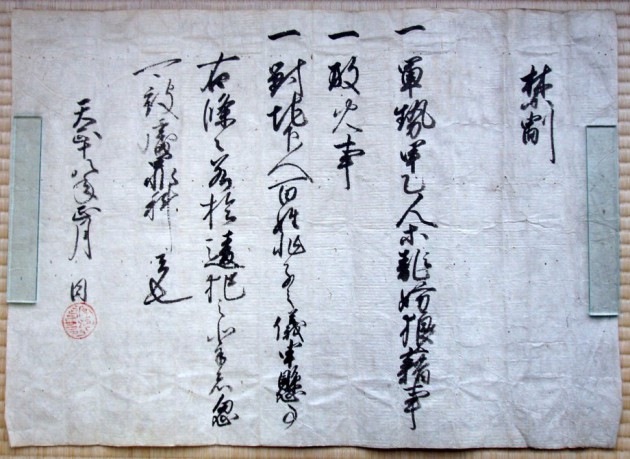 禁制
一 軍勢甲乙人等亂妨狼藉事
一 放火事
一 對地下人百姓非分之儀申懸事
右條々若於違犯之輩者忽
可被處罪科者也
天正十八年正月 日